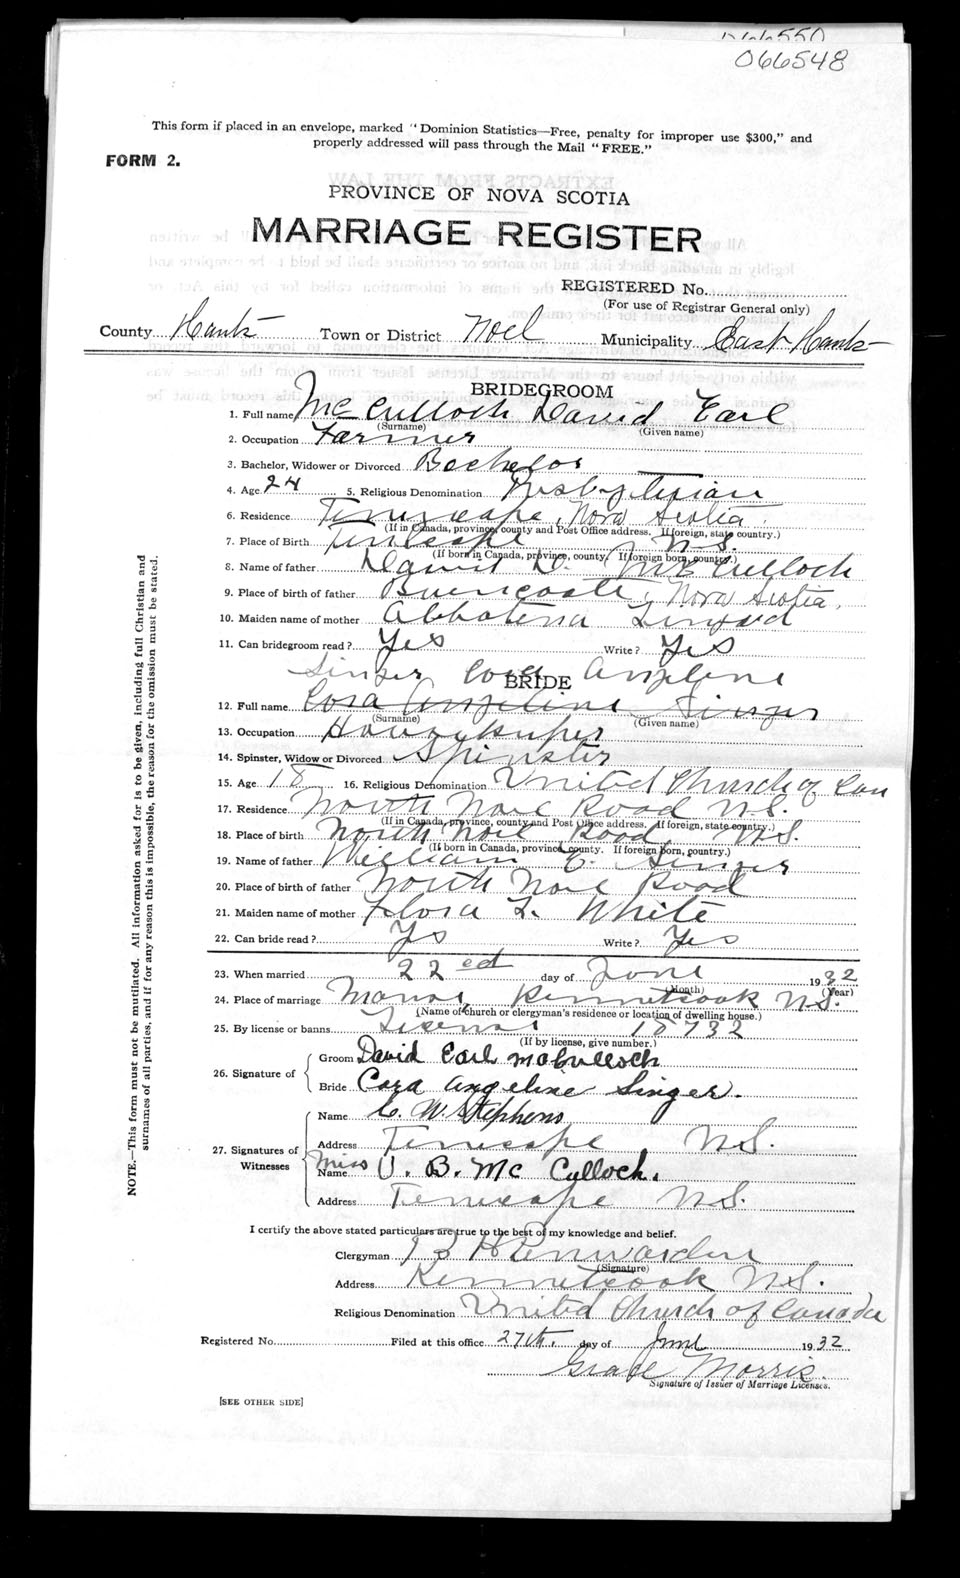 066550
066548
This form if placed in an envelope, marked "Dominion Statistics—Free, penalty for improper use $300," and
properly addressed will pass through the Mail "FREE."
FORM 2.
PROVINCE OF NOVA SCOTIA
MARRIAGE REGISTER
REGISTERED No.
(For use of Registrar General only)
County Hants Town or District Noel Municipality East Hants
BRIDEGROOM
1. Full name McCulloch David Earl
(Surname) (Given name)
2. Occupation Farmer
3. Bachelor, Widower or Divorced Bachelor
4. Age 24 5. Religious Denomination Presbyterian
6. Residence Tennecape, Nova Scotia.
(If in Canada, province, county and Post Office address. If foreign, state country.)
7. Place of Birth Tennecape N.S.
(If born in Canada, province, county. If foreign born, country.)
8. Name of father David D. McCulloch
9. Place of birth of father Burncoate, Nova Scotia.
10. Maiden name of mother
11. Can bridegroom read? Yes Write? Yes
Singer Cora Angeline
BRIDE
12. Full name Cora Angeline Singer
(Surname) (Given name)
13. Occupation Housekeeper
14. Spinster, Widow or Divorced Spinster
15. Age 18 16. Religious Denomination United Church of Can
17. Residence North Noel Road N.S.
(If in Canada, province, county and Post Office address. If foreign, state country.)
18. Place of birth North Noel Road N.S.
(If born in Canada, province, county. If foreign born, country.)
19. Name of father William C. Singer
20. Place of birth of father North Noel Road
21. Maiden name of mother Flora L. White
22. Can bride read? Yes Write? Yes
23. When married 22ed day of June 1932
(Month) (Year)
24. Place of marriage Manse, Kennetcook N.S.
(Name of church or clergyman's residence or location of dwelling house.)
25. By license or banns License 18732
(If by license, give number.)
26. Signature of
Groom David Earl McCulloch
Bride Cora Angeline Singer.
27. Signatures of Witnesses
Name C. W. Stephens
Address Tennecape N.S.
Name Miss V. B. McCulloch.
Address Tennecape N.S.
I certify the above stated particulars are true to the best of my knowledge and belief.
Clergyman B H Penwarden
(Signature)
Address Kennetcook N.S.
Religious Denomination United Church of Canada
Registered No. Filed at this office 27th. day of June 1932
Grace Morris.
Signature of Issuer of Marriage Licenses.
[SEE OTHER SIDE]
NOTE.—This form must not be mutilated. All information asked for is to be given, including full Christian and
surnames of all parties, and if for any reason this is impossible, the reason for the omission must be stated.